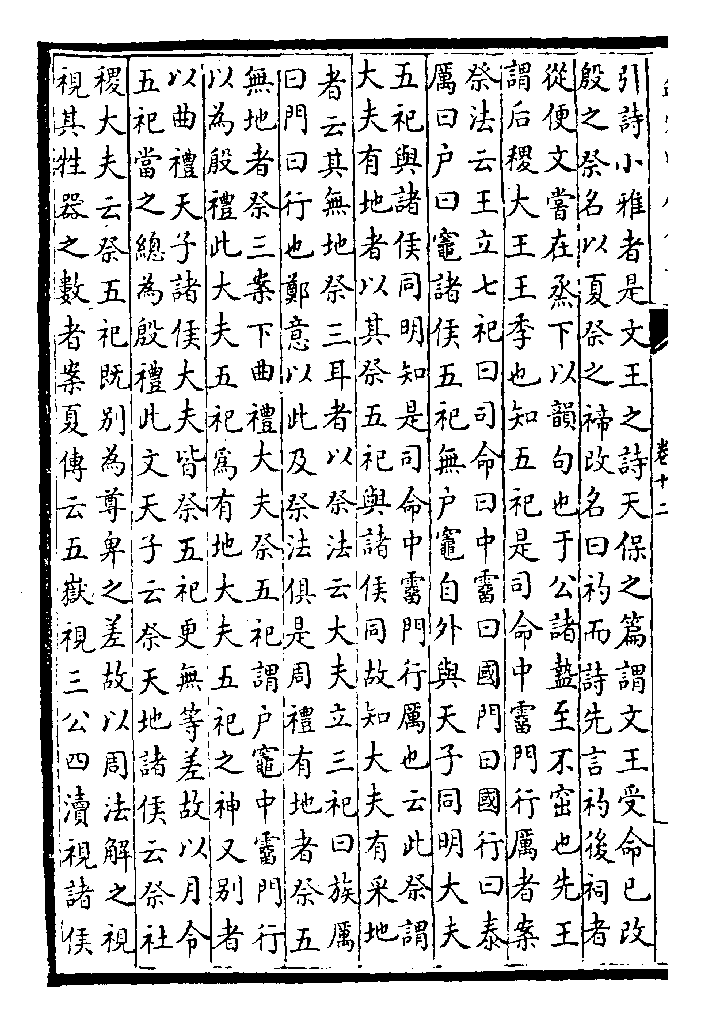 卷十二
引詩小雅者是文王之詩天保之篇謂文王受命已改
殷之祭名以夏祭之禘改名曰礿而詩先言礿後祠者
從便文嘗在烝下以韻句也于公諸盩至不窋也先王
謂后稷大王王季也知五祀是司命中霤門行厲者案
祭法云王立七祀曰司命曰中霤曰國門曰國行曰泰
厲曰户曰竈諸侯五祀無户竈自外與天子同明大夫
五祀與諸侯同明知是司命中霤門行厲也云此祭謂
大夫有地者以其祭五祀與諸侯同故知大夫有采地
者云其無地祭三耳者以祭法云大夫立三祀曰族厲
曰門曰行也鄭意以此及祭法俱是周禮有地者祭五
無地者祭三案下曲禮大夫祭五祀謂户竈中霤門行
以為殷禮此大夫五祀爲有地大夫五祀之神又别者
以曲禮天子諸侯大夫皆祭五祀更無等差故以月令
五祀當之總為殷禮此文天子云祭天地諸侯云祭社
稷大夫云祭五祀既别為尊卑之差故以周法解之視
視其牲器之數者案夏傳云五嶽視三公四瀆視諸侯